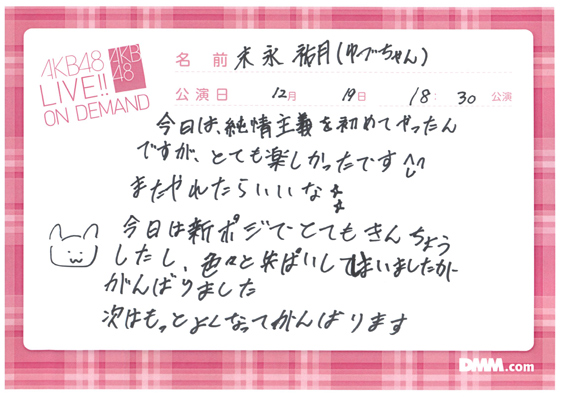 AKB48
LIVE!!
ON DEMAND
AKB
48
名 前 末永祐月(ゆづちゃん)
公演日 12月 19日 18:30 公演
今日は、純情主義を初めてやったん
ですが、とても楽しかったです^^
またやれたらいいな
今日は新ポジでとてもきんちょう
したし、色々と失ぱいしてしまいましたが
がんばりました
次はもっとよくなってがんばります
DMM.com